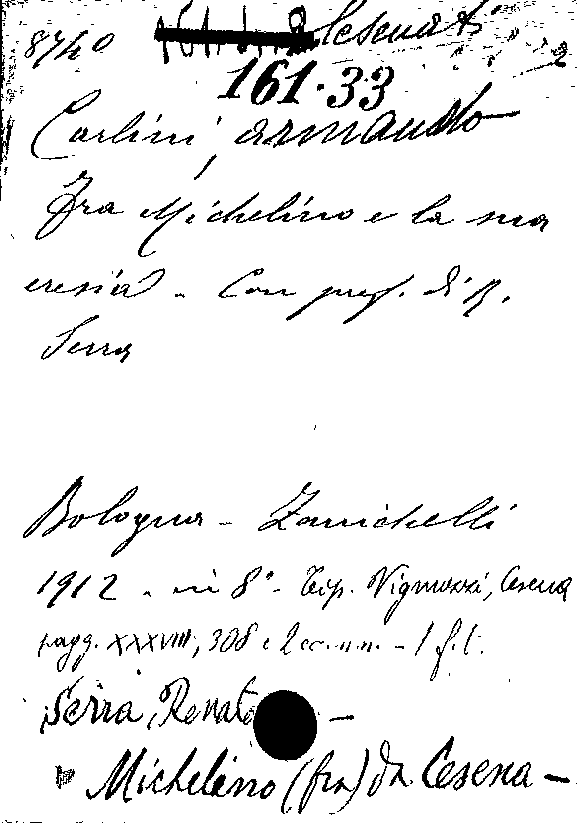 8740 Cesenat. 2
161.33
Carlini, Armando
Fra Michelino e la sua
eresia - Con pref. di R.
Serra
Bologna - Zanichelli
1912 - in 8° - Tip. Vignuzzi, Cesena
pagg. XXXVIII, 308 e 2 cc. n. n. - 1 f. t.
Serra, Renato -
Michelino (fra) da Cesena -